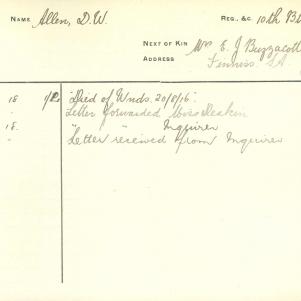 NAME Allen, D.W. REG. &C. 10th Bt
NEXT OF KIN Mrs E. J Buzzacott
ADDRESS Finniss. SA
18 1/2 "Died of Wnds. 20/8/16".
" Letter forwarded Miss Deakin
18. " " Inquirer
" Letter received from Inquirer